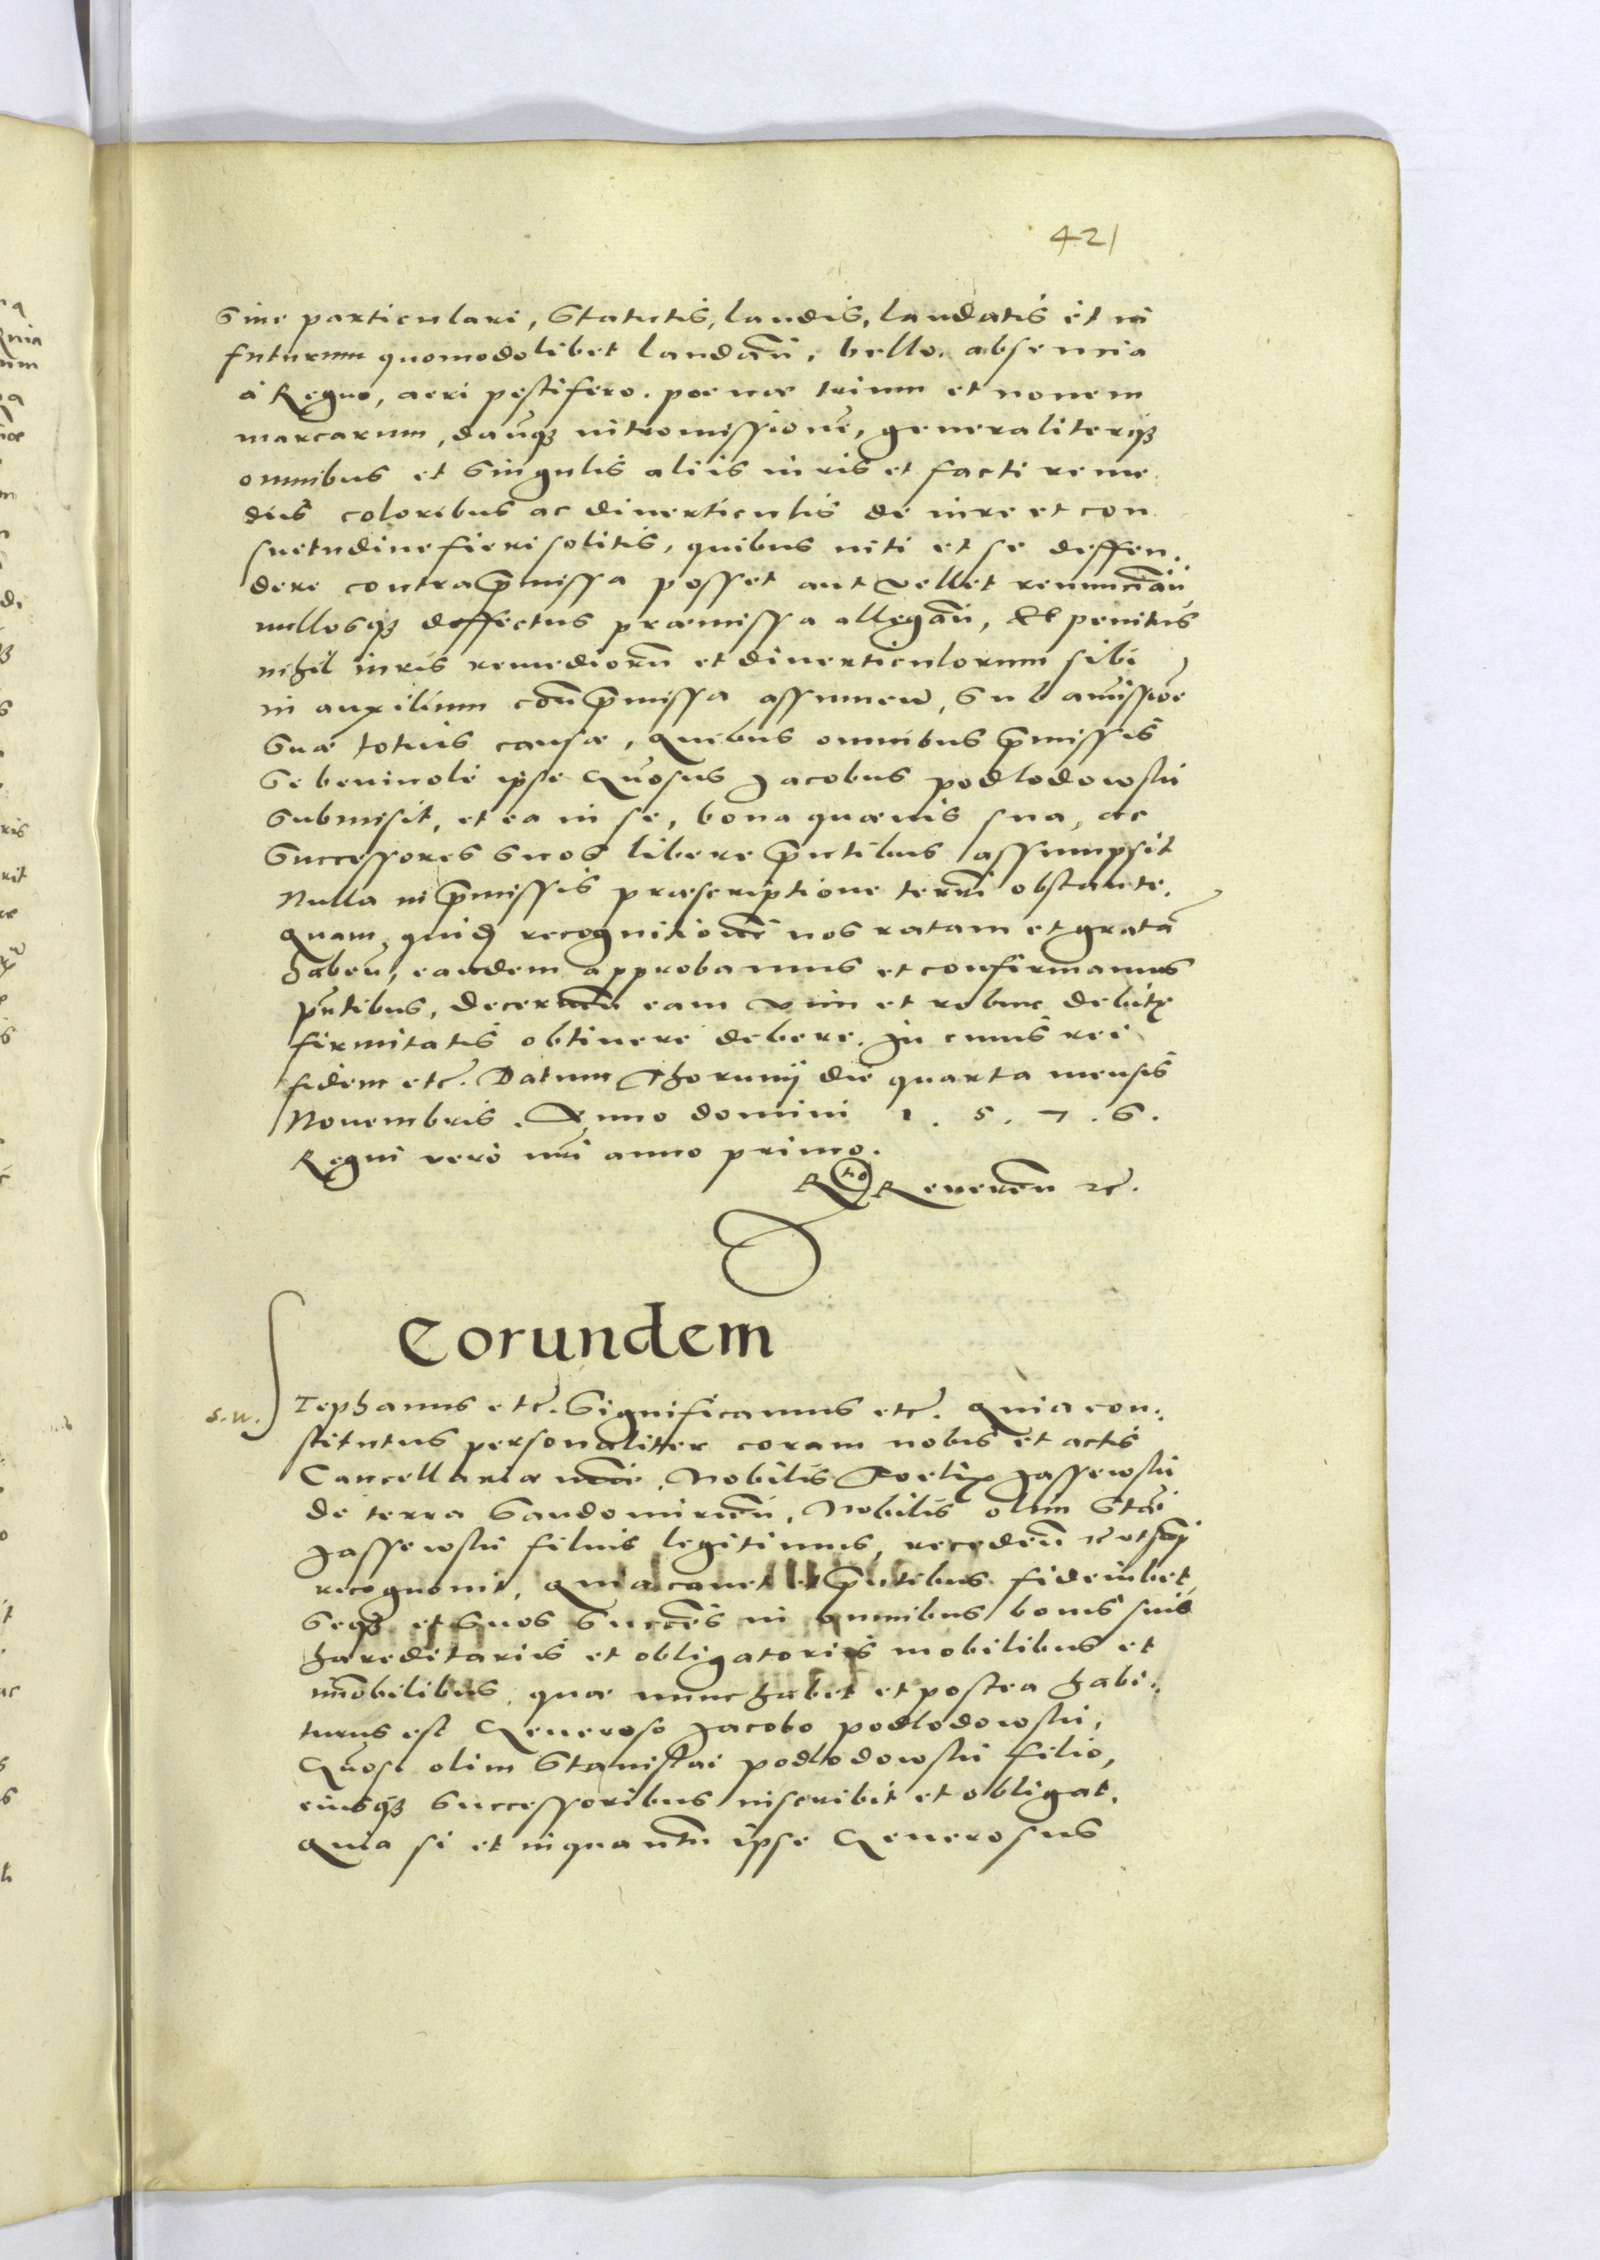 421
Siue particulari, Statutis, laudis, laudatis et in
futurum quomodolibet laudañ, bello, absencia
á Regno, aeri pestifero. poenae trium et nouem
marcarum, dañqȝ intromissionẽ, generaliterqȝ
omnibus et Singulis aliis iuris et facti reme
diis coloribus ac diuerticulis de iure et con
suetudine fieri solitis, quibus niti et se deffen.
dere contra p̃missa posset aut vellet renunciañ
nullosqȝ deffectus praemissa allegañ, & penitus
nihil iuris remediorũ et diuerticulorum sibi
in auxilium coñ p̃missa assumeñ, Sub amissiõe
Suae totius causae, Quibus omnibus p̃missis
Se beniuolé ipse Gñosus Jacobus podlodowskj
Submisit, et ea in se, bona quaeuis sua, ac
Successores Suos libere p̃ntibus assumpsit
Nulla in p̃missis praescriptione terrñi obstante.
Quam quid recognitionẽ nos ratam et gratã
habeñ, eandem approbamus et confirmamus
pñtibus, decerneñ eam vim et robur debitę
firmitatis obtinere debere. In cuius rei
fidem etc̃. Datum Thorunij die quarta mensis
Nouembris. Anno domini 1. 5. 7. 6.
Regni veró nr̃i anno primo.
Rtio Reuereñ etc̃.
Eorundem
S. W. Stephanus etc̃. Significamus etc̃. Quia con.
stitutus personaliter coram nobis et actis
Cancellariae nr̃ae, Nobilis Foelix Jassewskj
de terra Sandomirieñ, Nobilis olim Stañi
Jassewskj filius legitimus, recedeñ etc̃ ut sup̃
recognouit, Quia cauet et p̃ntibus fideiubet,
Seqȝ et Suos Succẽs in omnibus bonis suis
haereditariis et obligatoriis mobilibus et
im̃obilibus, quae nunc habet et postea habi.
turus est Generoso Jacobo podlodowskj,
Gñosi olim Stanislai podlodowskj filio,
eiusqȝ Successoribus inscribit et obligat.
Quia si et inquantũ ipse Generosus